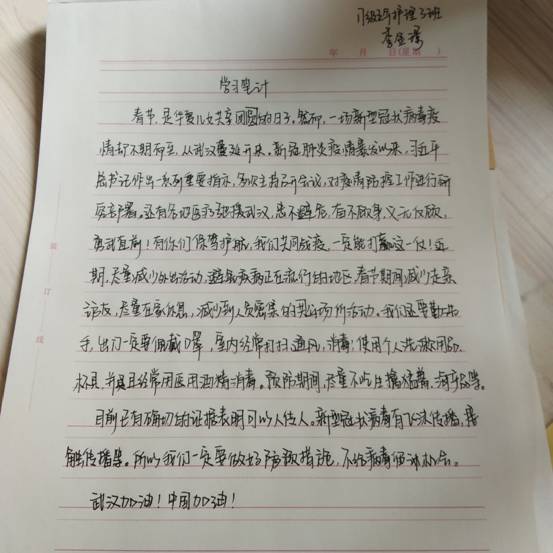 17级五年护理3班
李金瑶
年 月 日(星期 )
学习笔记
春节,是华夏儿女共享团圆的日子。然而,一场新型冠状病毒疫
情却不期而至,从武汉蔓延开来。新冠肺炎疫情暴发以来,习近平
总书记作出一系列重要指示,多次主持召开会议,对疫情防控工作进行研
究部署。还有各地医护驰援武汉,患不避危,百不敢第,义无反顾,
勇武直前!有你们保驾护航,我们共同战疫,一定能打赢这一仗!近
期,尽量减少外出活动,避免疾病正在流行的地区,春节期间减少走亲
访友,尽量在家休息,减少到人员密集的公共场所活动。我们还要勤洗
手,出门一定要佩戴口罩,室内经常打扫通风,消毒,使用个人洗漱用品,
杯具,并且经常用医用酒精消毒。预防期间,尽量不吃烧烤,海鲜等。
目前已有确切的证据表明可以人传人。新型冠状病毒有飞沫传播,接
触传播等。所以我们一定要做好防范措施,不给病毒留机会。
武汉加油!中国加油!
装
订
线